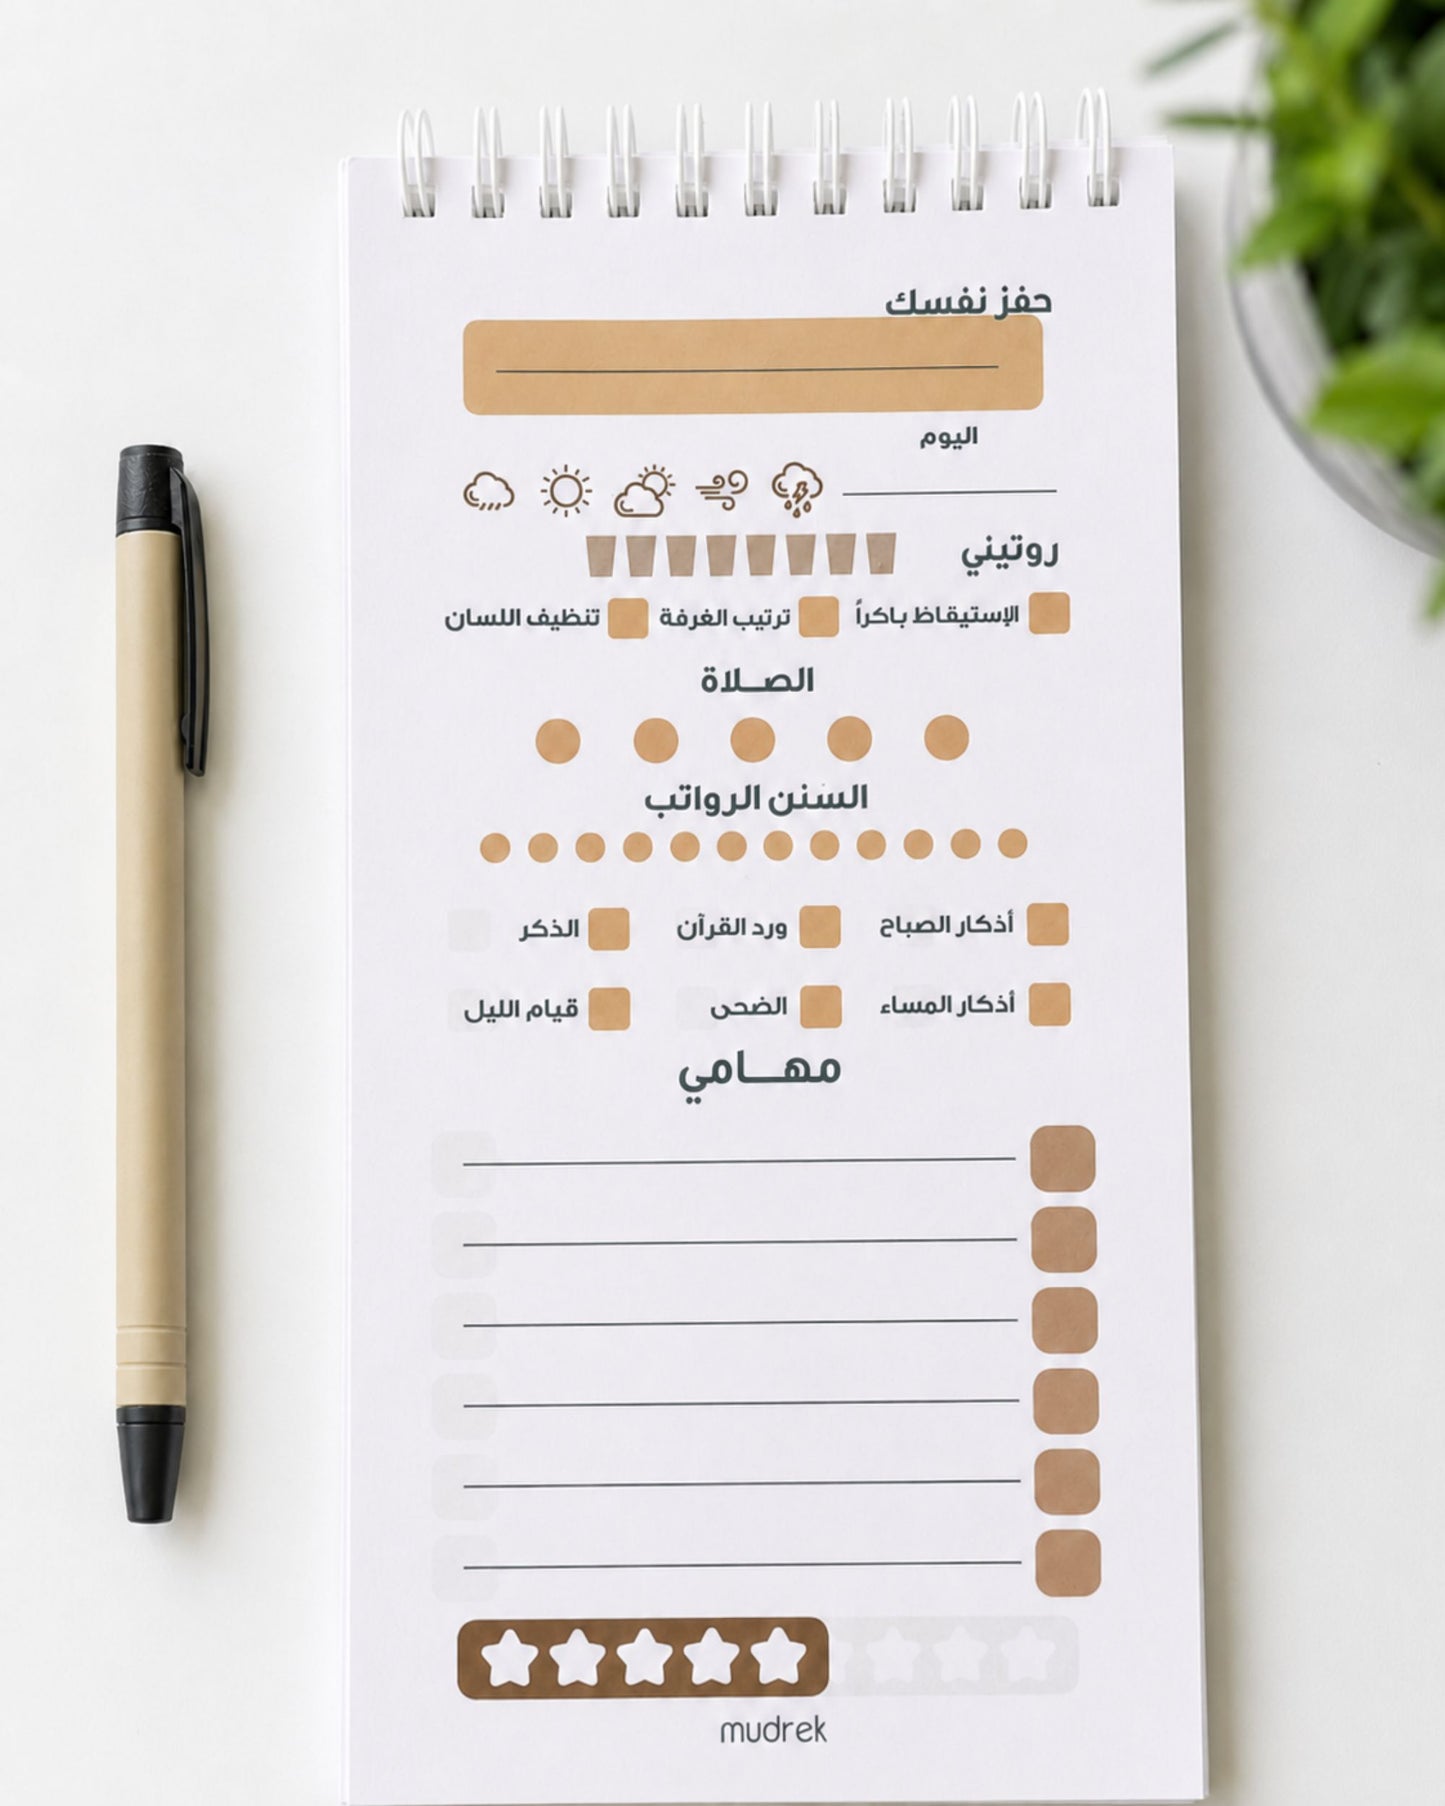 حفز نفسك
اليوم
روتيني
الإستيقاظ باكراً ترتيب الغرفة تنظيف اللسان
الصـلاة
السنن الرواتب
أذكار الصباح ورد القرآن الذكر
أذكار المساء الضحى قيام الليل
مهـــامي
mudrek